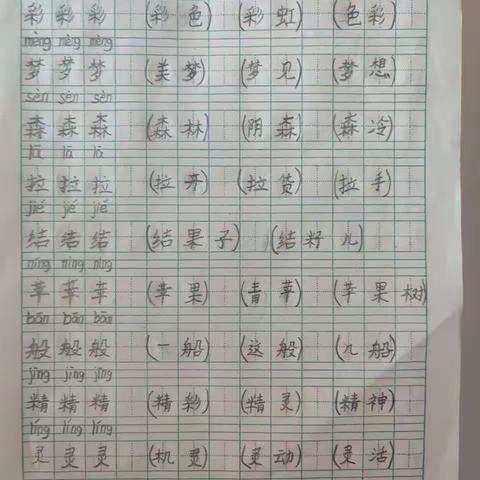 彩 彩 彩 (彩色) (彩虹) (色彩)
mèng mèng mèng
梦 梦 梦 (美梦) (梦见) (梦想)
sēn sēn sēn
森 森 森 (森林) (阴森) (森冷)
lā lā lā
拉 拉 拉 (拉开) (拉货) (拉手)
jié jié jié
结 结 结 (结果子) (结籽儿)
níng níng níng
苹 苹 苹 (苹果) (青苹) (苹果树)
bān bān bān
般 般 般 (一船) (这般) (几船)
jīng jīng jīng
精 精 精 (精彩) (精灵) (精神)
líng líng líng
灵 灵 灵 (机灵) (灵动) (灵活)